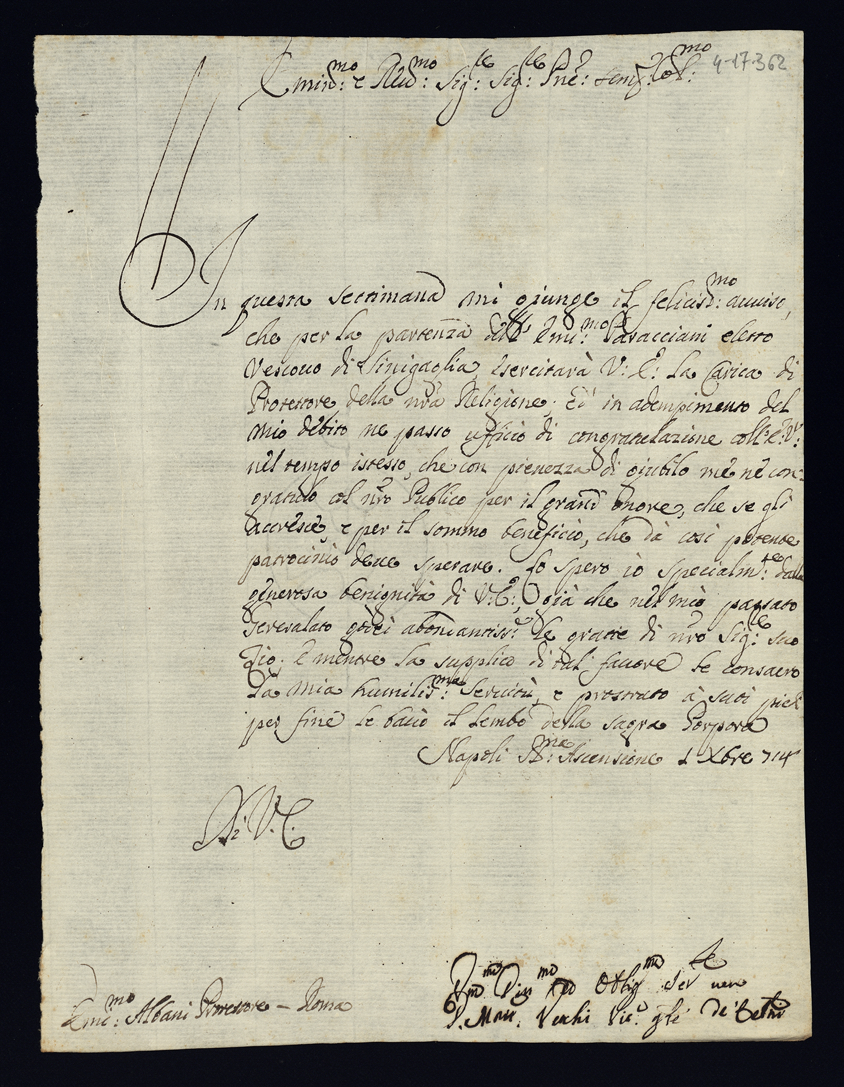 Emin:mo e Reu:mo Sig:re Sig:re Pne: Col:mo
4-17-362
In questa settimana mi giunge il felicis:mo auuiso,
che per la partenza dell' Emi:mo Paracciani eletto
Vescouo di Sinigaglia esercitarà V: E: la Carica di
Protettore della nra Religione; Ed in adempimento del
mio debito ne passo ufficio di congratulazione coll' E: V:
nel tempo istesso, che con pienezza di giubilo me ne con-
gratulo col nro Publico per il grand' onore, che se gli
accresce, e per il sommo beneficio, che dà così potente
patrocinio deue sperare. Lo spero io specialm:te dalla
generosa benignità di V: E:, già che nel mio passato
Generalato godei abondantiss:e le gratie di nro Sig:re suo
Zio; E mentre la supplico di tal fauore le consacro
la mia humilis:ma Seruitù, e prostrato à suoi piedi
per fine le bacio il lembo della sagra Porpora
Napoli SS:ma Ascensione 1 Xbre 714
Di V. E.
Emi:mo Albani Protettore - Roma
Hum:mo Diu:mo Oblig:mo Ser:re uero
Vecchi Vic:o gnle de'